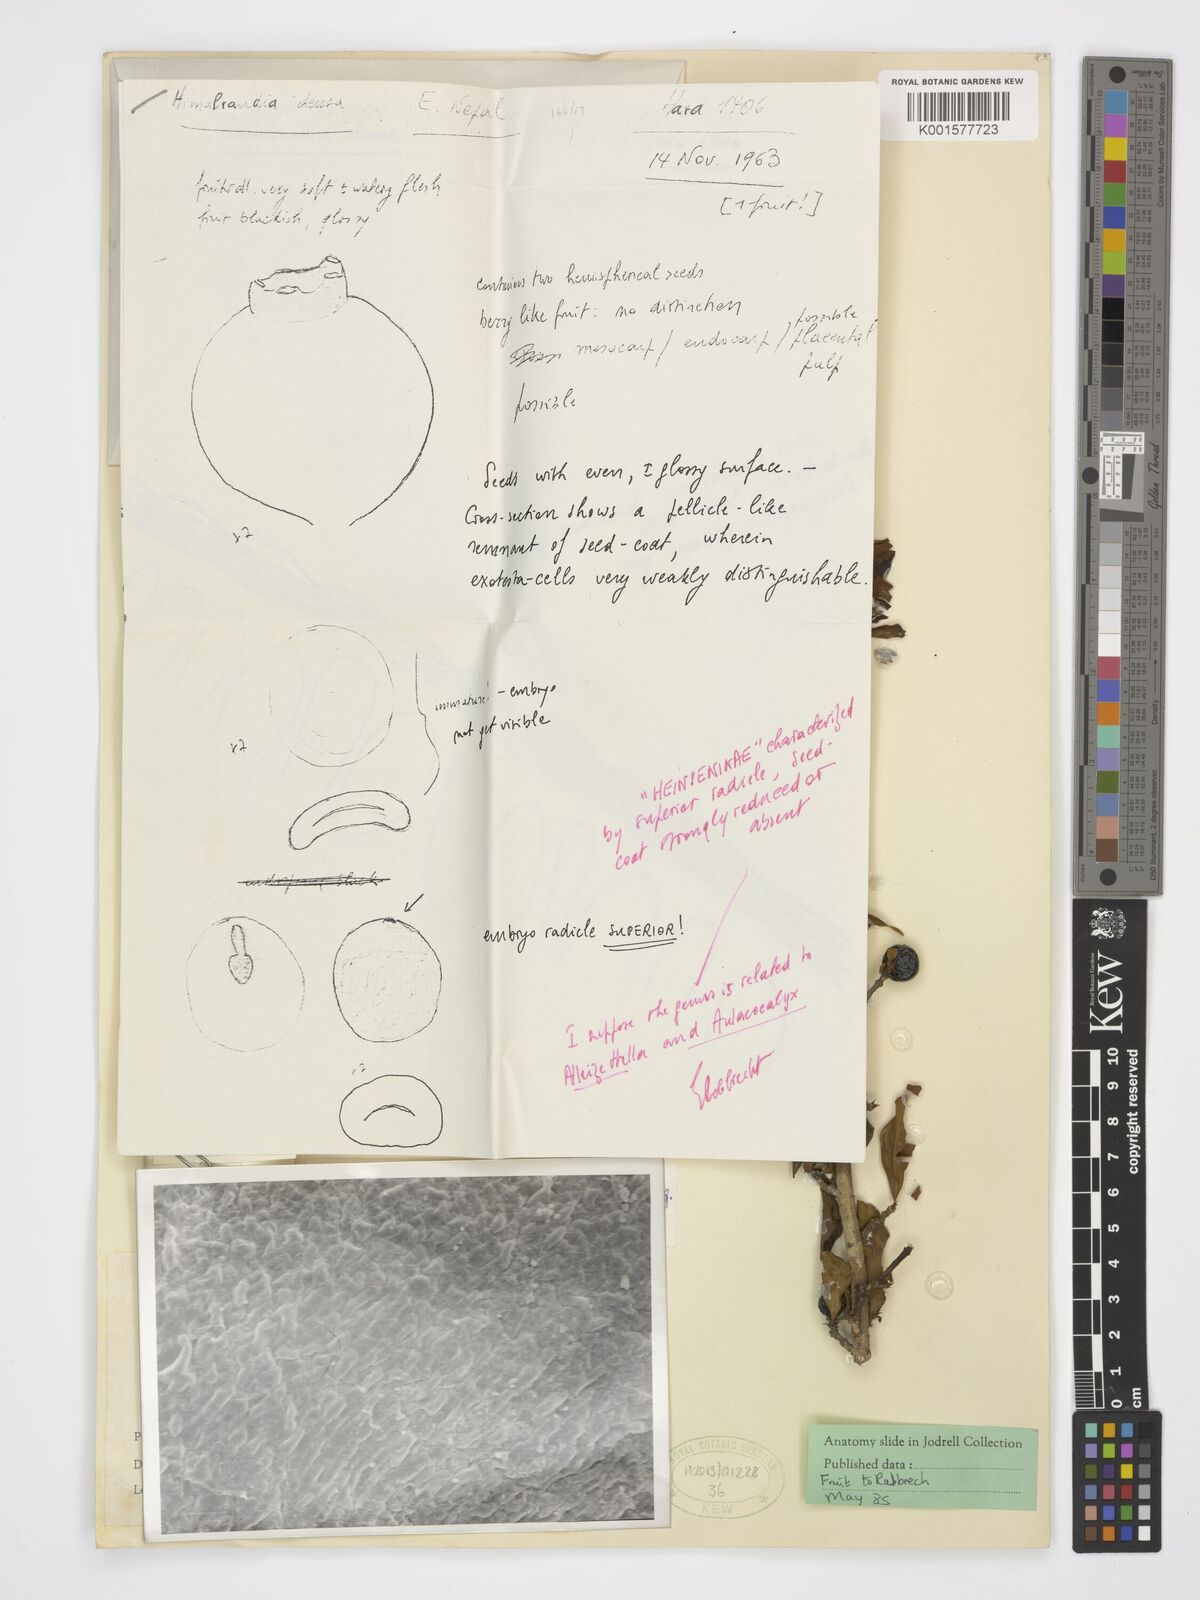 ROYAL BOTANIC GARDENS KEW
K001577723
Himalrandia densa
E. Nepal
Hara 1406
14 Nov. 1963
[1 fruit!]
fruitwall: very soft ± watery flesh
fruit blackish, glossy
contains two hemispherical seeds
berry like fruit: no distinction
mesocarp / endocarp / possible
placental
pulp
possible
x7
Seeds with even, ± glossy surface. –
Cross-section shows a pellicle-like
remnant of seed-coat, wherein
exotesta-cells very weakly distinguishable.
immature! – embryo
not yet visible
x7
"HEINSENIKAE" characterized
by superior radicle, seed-
coat strongly reduced or
absent
embryo radicle SUPERIOR!
I suppose the genus is related to
Alleizettella and Aulacocalyx
Robbrecht
Anatomy slide in Jodrell Collection
Published data:
Fruit to Robbrech
May 85
ROYAL BOTANIC GARDENS
36
KEW
P
D
Lo
Colors by Munsell Color Services Lab
Golden Thread
Density
D50 Illuminant, 2 degree observer
Royal Botanic Gardens
Kew
0 1 2 3 4 5 6 7 8 9 10
cm
copyright reserved